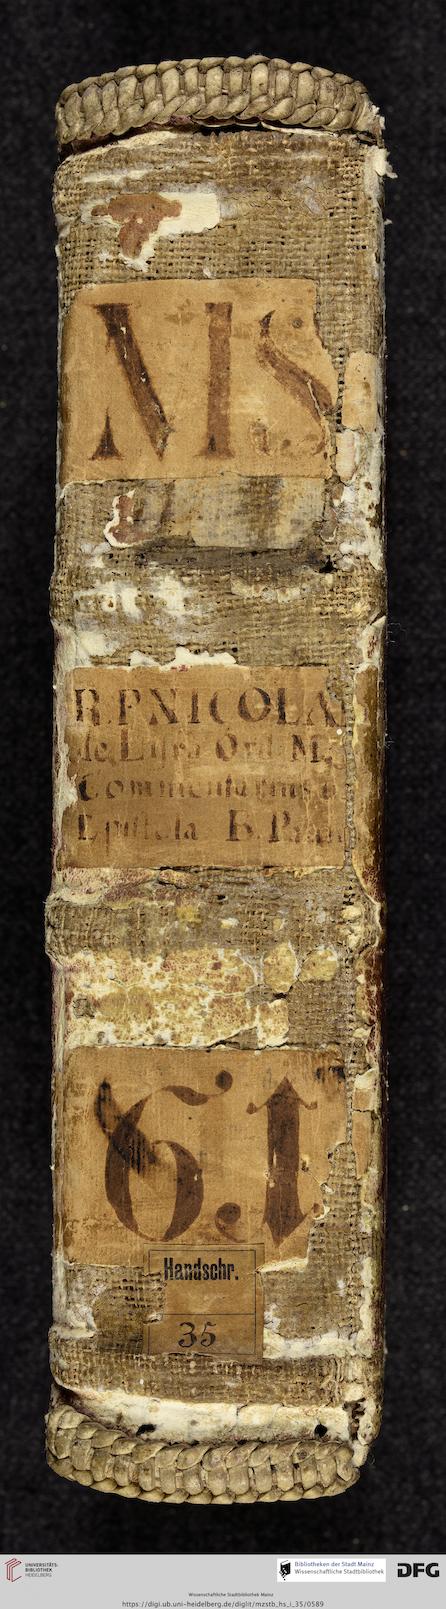 MS
R.P.NICOLA
de Lÿra Ord. M.
Commentarius
Epistola B. Paul
6.1
Handschr.
35
UNIVERSITÄTS-
BIBLIOTHEK
HEIDELBERG
Bibliotheken der Stadt Mainz
Wissenschaftliche Stadtbibliothek
DFG
Wissenschaftliche Stadtbibliothek Mainz
https://digi.ub.uni-heidelberg.de/diglit/mzstb_hs_i_35/0589